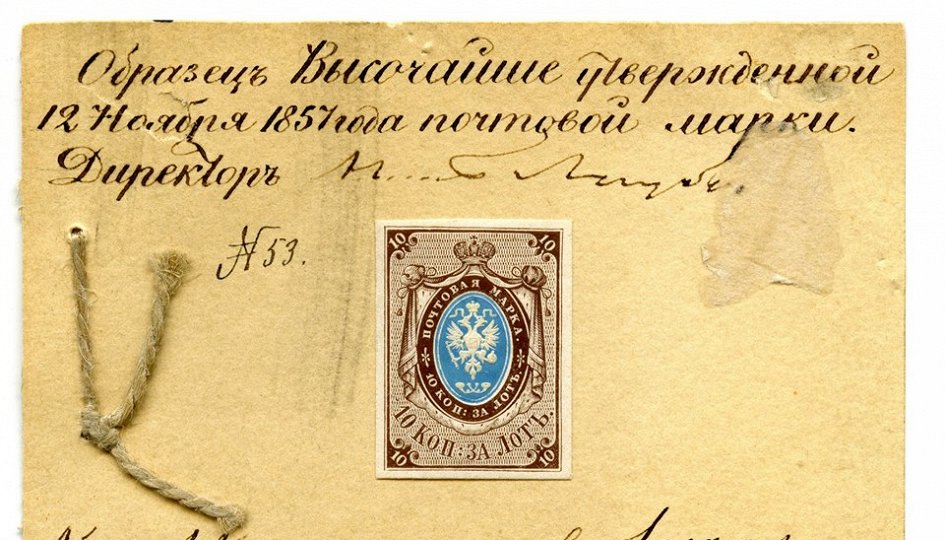 Образецъ Высочайше утвержденной
12 Ноября 1857 года почтовой марки.
Директоръ
№ 53.
10 10
ПОЧТОВАЯ МАРКА.
* 10 КОП: ЗА ЛОТЪ. *
10 КОП: ЗА ЛОТЪ.
10 10